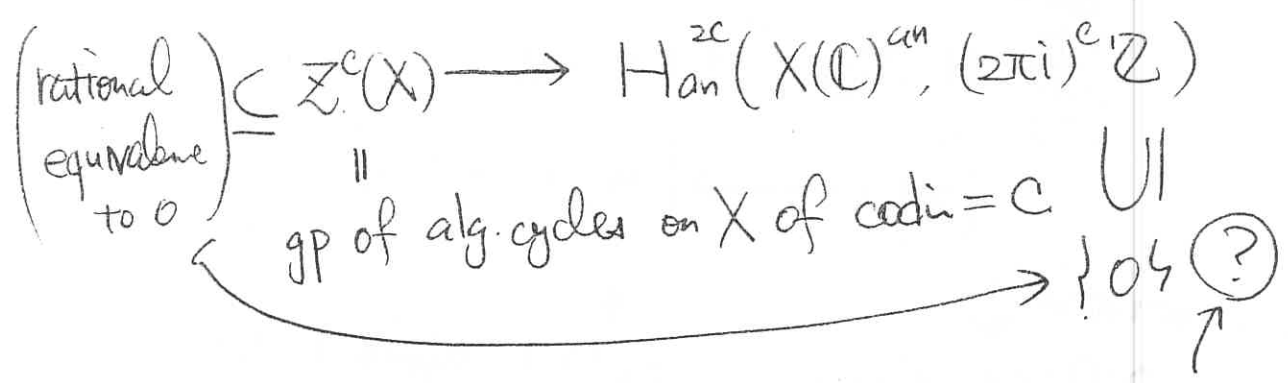 (rational equivalence to 0) ⊆ Z^c(X) ⟶ H_an^{2c}(X(ℂ)^{an}, (2πi)^c ℤ)
|| ∪|
gp of alg. cycles on X of codim = c {0} ?